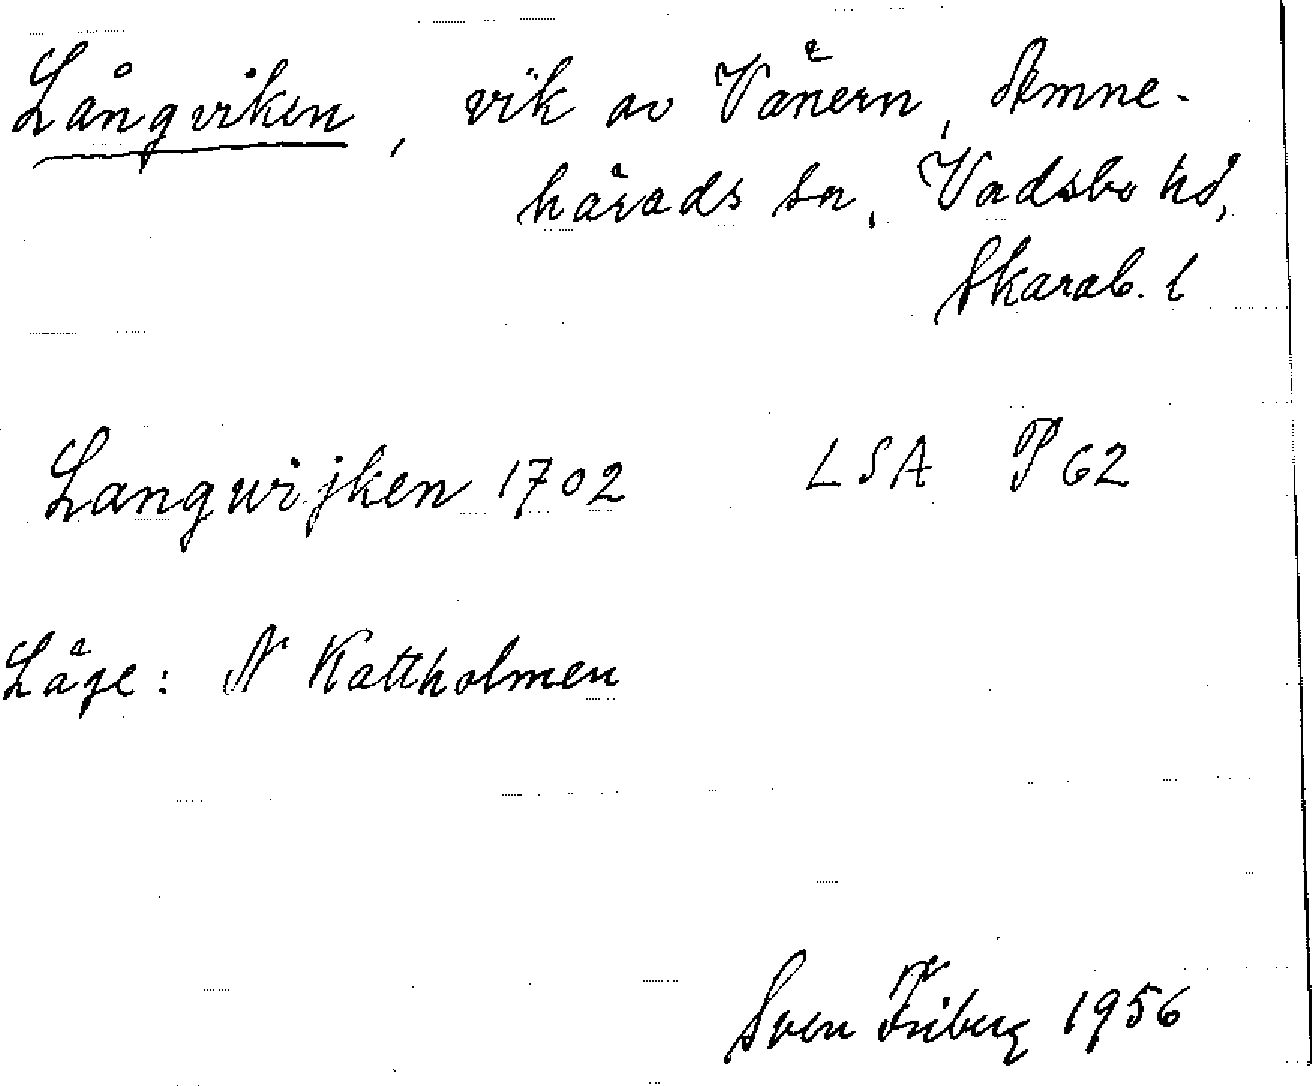 Långviken, vik av Vänern, Amne-
härads sn, Vadsbo hd,
Skarab. l
Langwijken 1702 LSA P 62
Läge: N Kattholmen
Sven Friberg 1956